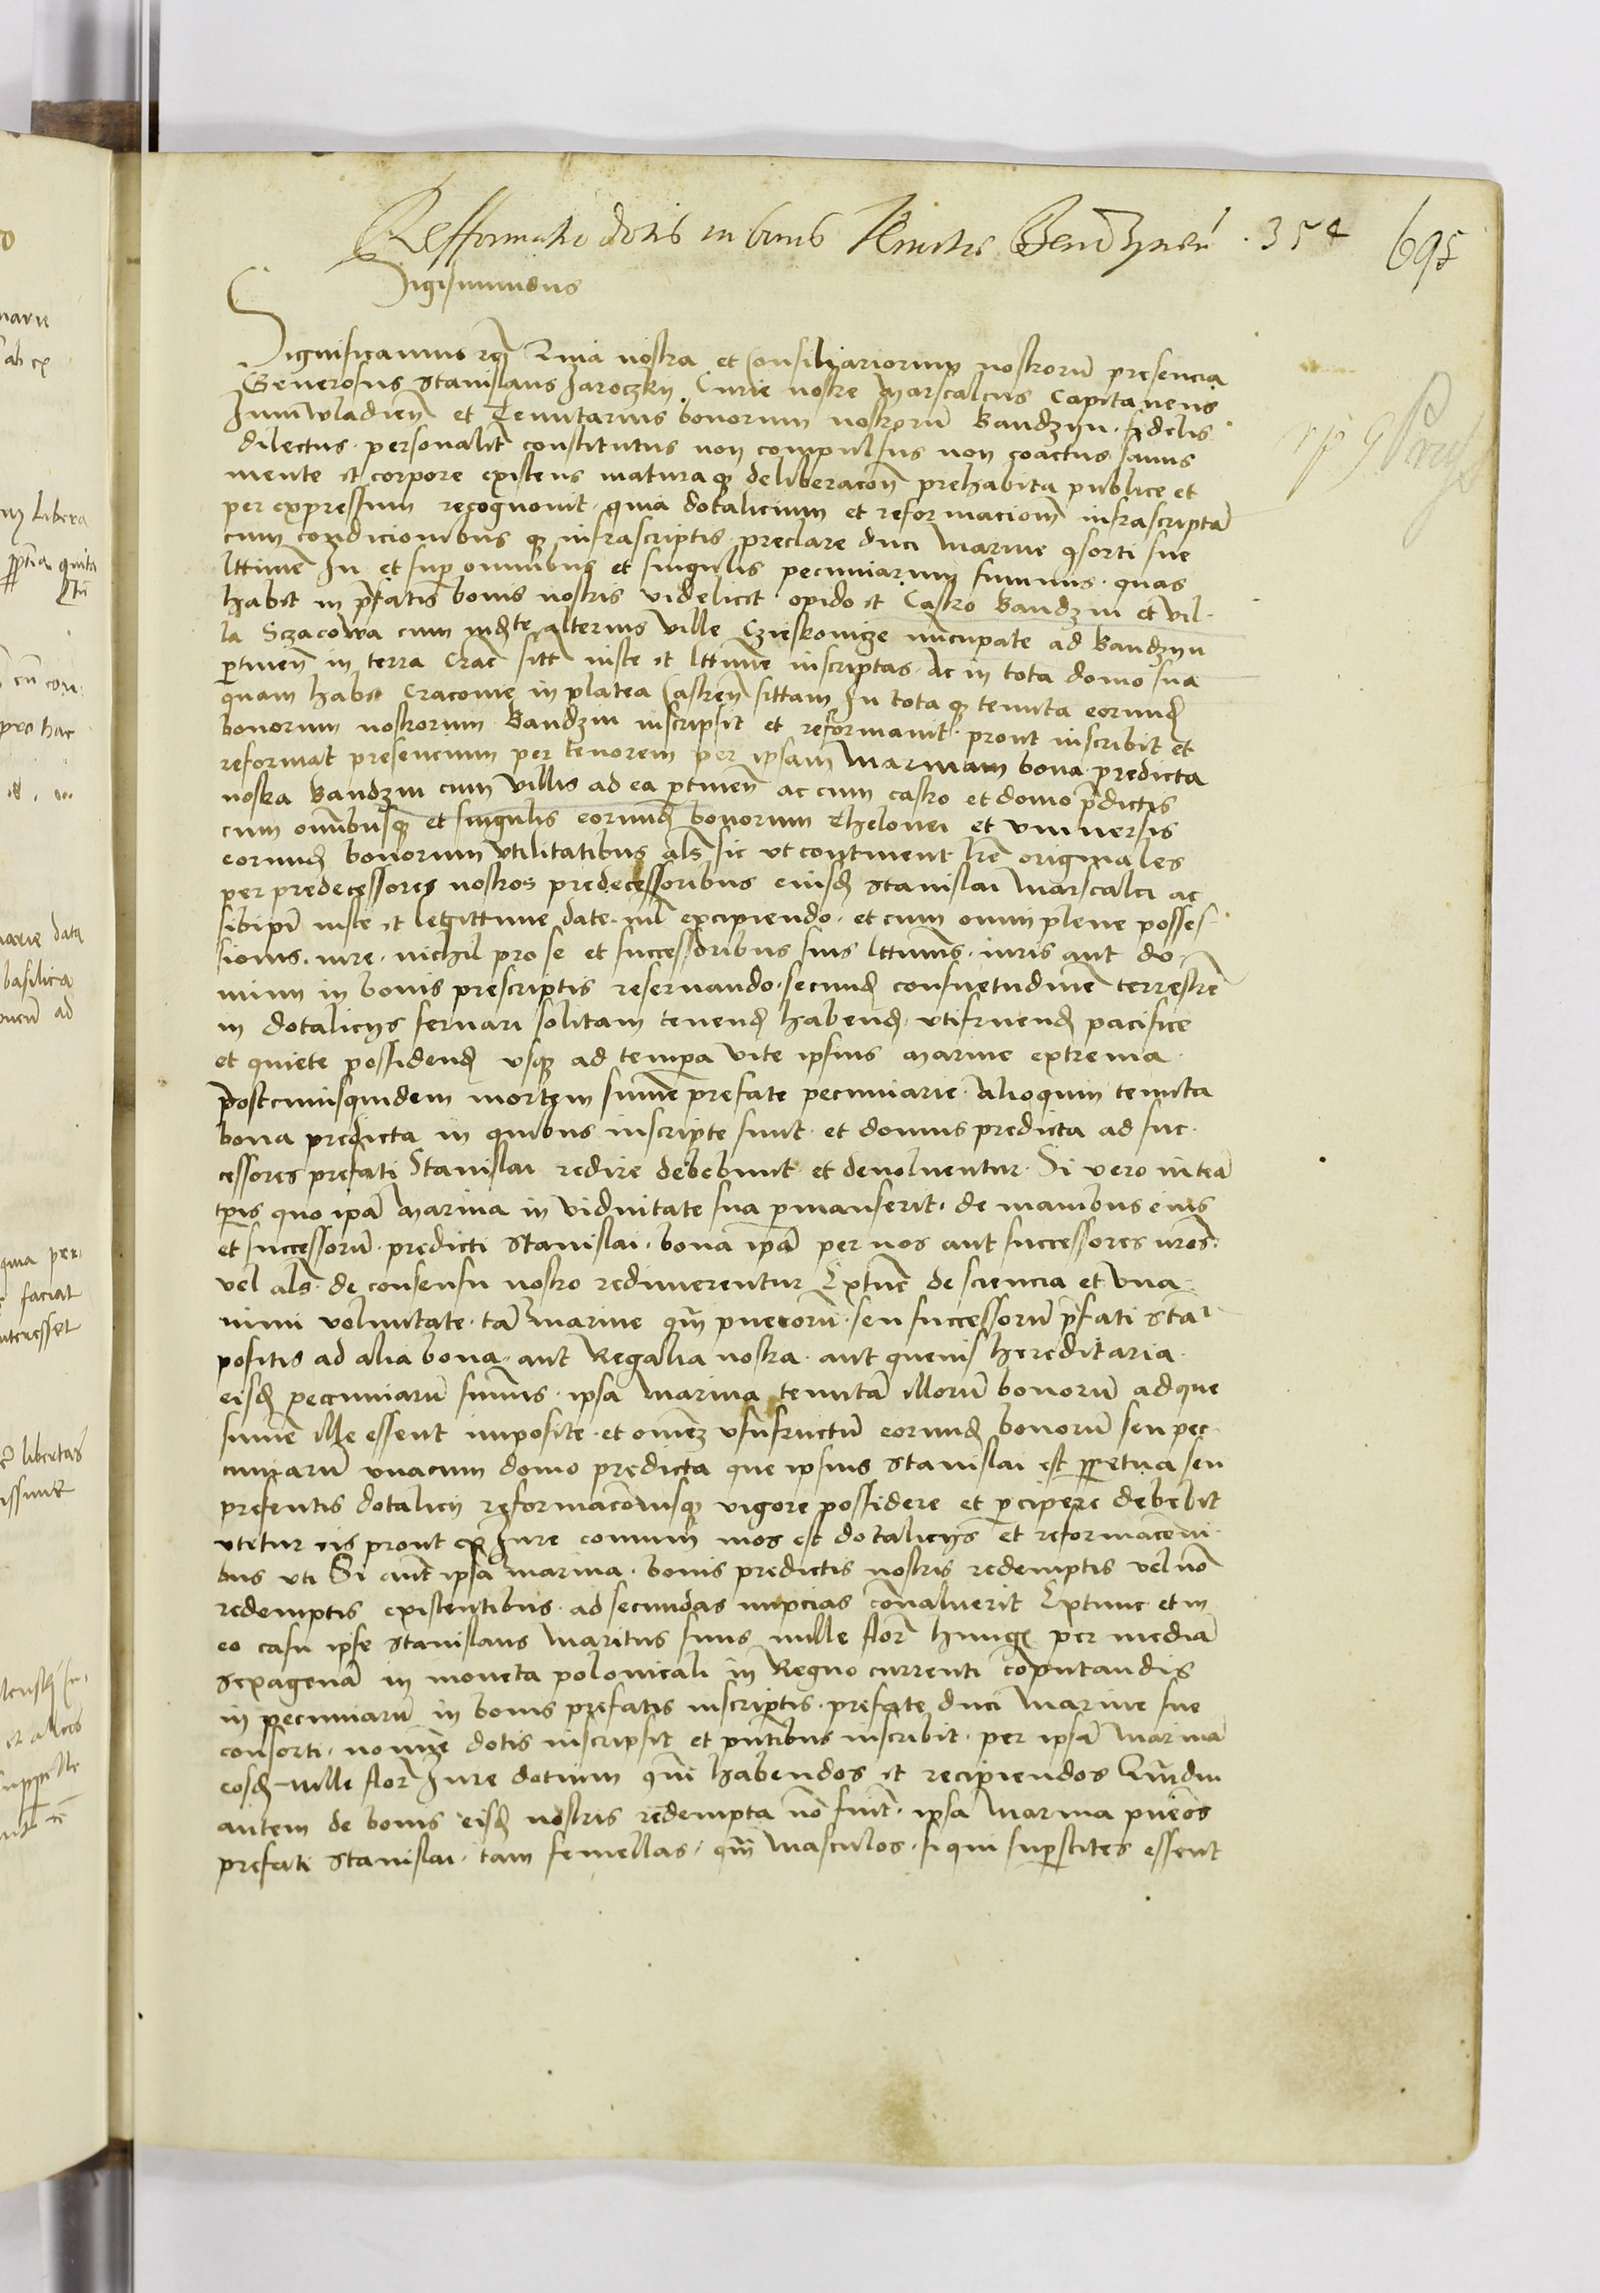 Refformatio dotis in bonis Tenute Bendzynen . 354 695
Sigismundus
Significamus ꝛcꝫ Quia nostra et Consiliariorum nostrorū presencia
Generosus Stanislaus Jaroczky Curie nostre Marscalcus Capitaneus
Juniwladien̄ et Tenutarius bonorum nostrorū Bandzyn . fidelis
dilectus . personalit̄ constitutus non compulsus non coactus sanus
mente et corpore existens maturaqꝫ deliberacōn prehabita publice et
per expressum recognovit . quia dotalicium et reformacionē infrascriptā
cum condicionibusqꝫ infrascriptis preclare duci Marine ꝯsorti sue
lttime In et sup omnibus et singulis pecuniarum summis . quas
habet in p̄fatis bonis nostris videlicet opido et Castro Bandzin et vil-
la Sczacowa cum medte alterius ville Czieskowicze nūcupate ad Bandzyn
ptinen̄ in terra Crac̄ sitt̄ iuste et lttime inscriptas . Ac in tota domo sua
quam habet Cracovie in platea Castren̄ sittam In totaqꝫ tenuta eorundꝫ
bonorum nostrorum Bandzin inscripsit et reformavit . prout inscribit et
reformat presencium per tenorem per ipsam Marinam bona predicta
nostra Bandzin cum villis ad ea ptinen̄ ac cum castro et domo p̄dictis
cum omnibusqꝫ et singulis eorundꝫ bonorum theloneī et universis
eorundꝫ bonorum utilitatibus als̄ sic ut continent lr̄e originales
per predecessores nostros predecessoribus eiusdꝫ Stanislai Marscalci ac
sibipi iuste et legittime date . nil excipiendo . et cum omni plene posses-
sionis . iure . nichil pro se et successoribus suis lttimis . iuris aut do-
minii in bonis prescriptis reservando . secundꝫ consuetudinē terrestrē
in dotalicys servari solitam tenendꝫ habendꝫ utifruendꝫ pacifice
et quiete possidendꝫ usqꝫ ad tempa vite ipsius Marine extrema .
postcuiusquidem mortem summe prefate pecuniarie . alioquin tenuta
bona predicta in quibus inscripte sunt . et domus predicta ad suc-
cessores prefati Stanislai redire debebunt et devolventur . Si vero in teā
tp̄is quo ipā Marina in viduitate sua pmanserit . de manibus eius
et successorū . predicti Stanislai . bona ipā per nos aut successores nros .
vel als̄ . de consensu nostro redimerentur Extūc de sciencia et una-
nimi voluntate . tā Marine qm̄ puerorū . seu successorū p̄fati Sta
positis ad alia bona . aut Regalia nostra . aut quevis hereditaria .
eisdꝫ pecuniarū summis . ipsa Marina tenutā illorū bonorū ad que
summe ille essent imposite . et omnē usufructū eorundꝫ bonorū seu pec-
cuniarū unacum domo predicta que ipsius Stanislai est ppetua seu
presentis dotalicij reformaconisqꝫ vigore possidere et pcipere debebit
utetur eis prout ex Jure comuni mos est dotalicys et reformacōni-
bus uti Si aūt ipsa Marina . bonis predictis nostris redemptis vel nō
redemptis existentibus . ad secundas nupcias cōvaluerit Extunc et in
eo casu ipse Stanislaus Maritus suus mille flor̄ hungꝫ per mediā
sexagenā in moneta polonicali in Regno currenti cōputandis
in pecuniarū in bonis prefatis inscriptis . prefate duci Marine sue
consorti . nomine dotis inscripsit et pntibus inscribit . per ipsā Marinā
eosdꝫ mille flor̄ Jure dotium qm̄ habendos et recipiendos Quādiu
autem de bonis eisdꝫ nostris redempta nō fuit . ipsa Marina pueros
prefati Stanislai . tam femellas . qm̄ masculos . siqui supstites essent